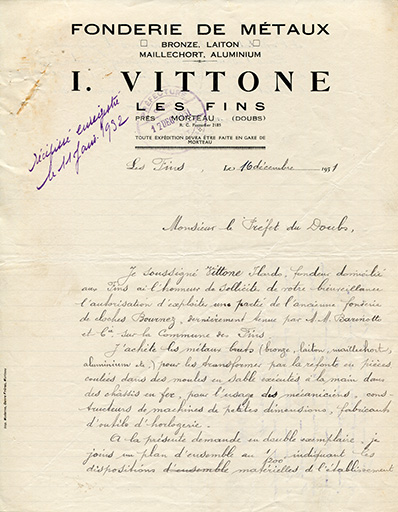 FONDERIE DE MÉTAUX
BRONZE, LAITON
MAILLECHORT, ALUMINIUM
I. VITTONE
LES FINS
PRÈS MORTEAU (DOUBS)
R. C. Pontarlier 2181
TOUTE EXPÉDITION DEVRA ÊTRE FAITE EN GARE DE
MORTEAU
récépissé enregistré
le 11 janv. 1932
Les Fins, Le 16 décembre 1931
Monsieur le Préfet du Doubs,
Je soussigné Vittone, fondeur domicilié
aux Fins ai l'honneur de sollicité de votre bienveillance
l'autorisation d'exploiter une partie de l'ancienne fonderie
de cloches Bournez, dernièrement tenue par M.M. Barinotto
et Cie sur la Commune des Fins
J'achète les métaux bruts (bronze, laiton, maillechort,
aluminium etc) pour les transformer par la refonte en pièces
coulées dans des moules en sable exécutés à la main dans
des châssis en fer, pour l'usage des mécaniciens, cons-
tructeurs de machines de petites dimensions, fabricants
d'outils d'horlogerie.
A la présente demande en double exemplaire, je
joins un plan d'ensemble au 1/200 indiquant les
dispositions d'ensemble matérielles de l'établissement